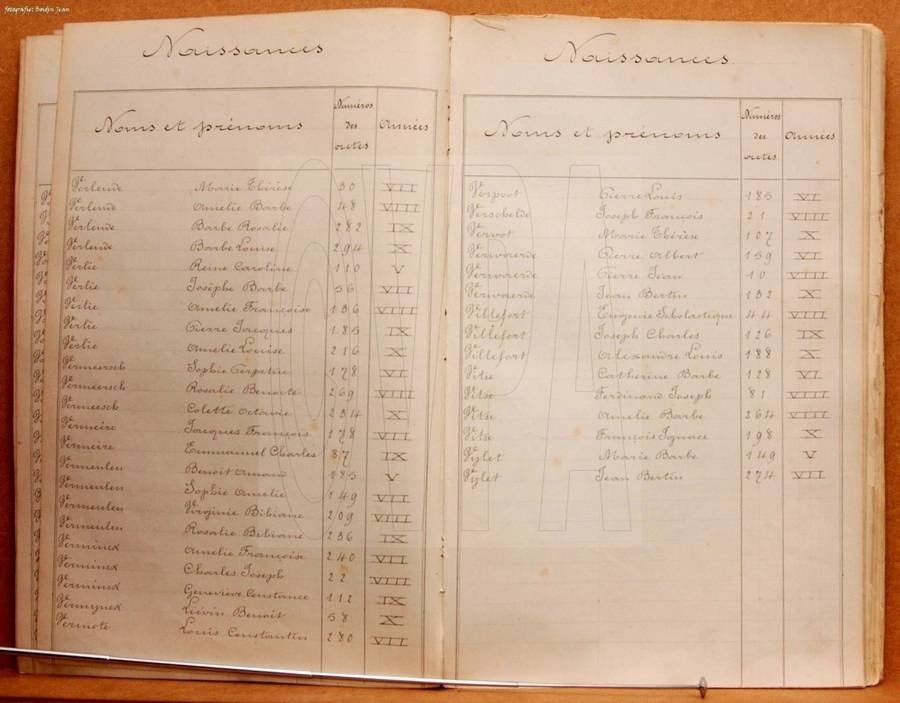 fotografie: Boidin Jean
Naissances
Noms et prénoms Numéros des actes Années
Verlende Marie Thérèse 30 VII
Verlende Amelie Barbe 48 VIII
Verlende Barbe Rosalie 282 IX
Verlende Barbe Louise 294 X
Verlie Reine Caroline 110 V
Verlie Josephe Barbe 56 VII
Verlie Amelie Françoise 136 VIII
Verlie Pierre Jacques 185 IX
Verlie Amelie Louise 216 X
Vermeersch Sophie Perpétue 178 VI
Vermeersch Rosalie Benoite 269 VIII
Vermeesch Colette Octavie 234 X
Vermeire Jacques François 178 VII
Vermeire Emmanuel Charles 87 IX
Vermeulen Benoit Amand 185 V
Vermeulen Sophie Amelie 149 VII
Vermeulen Virginie Bibiane 209 VIII
Vermeulen Rosalie Bibiane 236 IX
Verminck Amelie Françoise 240 VII
Verminck Charles Joseph 22 VIII
Verminck Geneviève Constance 112 IX
Vermynck Liévin Benoit 58 X
Vermote Louis Constantin 280 VII
Naissances
Noms et prénoms Numéros des actes Années
Verpoot Pierre Louis 185 VI
Verschelde Joseph François 21 VIII
Vervot Marie Thérèse 107 X
Verwaerde Pierre Albert 159 VI
Verwaerde Pierre Jean 10 VIII
Verwaerde Jean Bertin 132 X
Villefort Eugenie Scholastique 44 VIII
Villefort Joseph Charles 126 IX
Villefort Alexandre Louis 188 X
Vitse Catherine Barbe 128 VI
Vitse Ferdinand Joseph 81 VIII
Vitse Amelie Barbe 264 VIII
Vitse François Ignace 198 X
Vylet Marie Barbe 149 V
Vylet Jean Bertin 274 VII